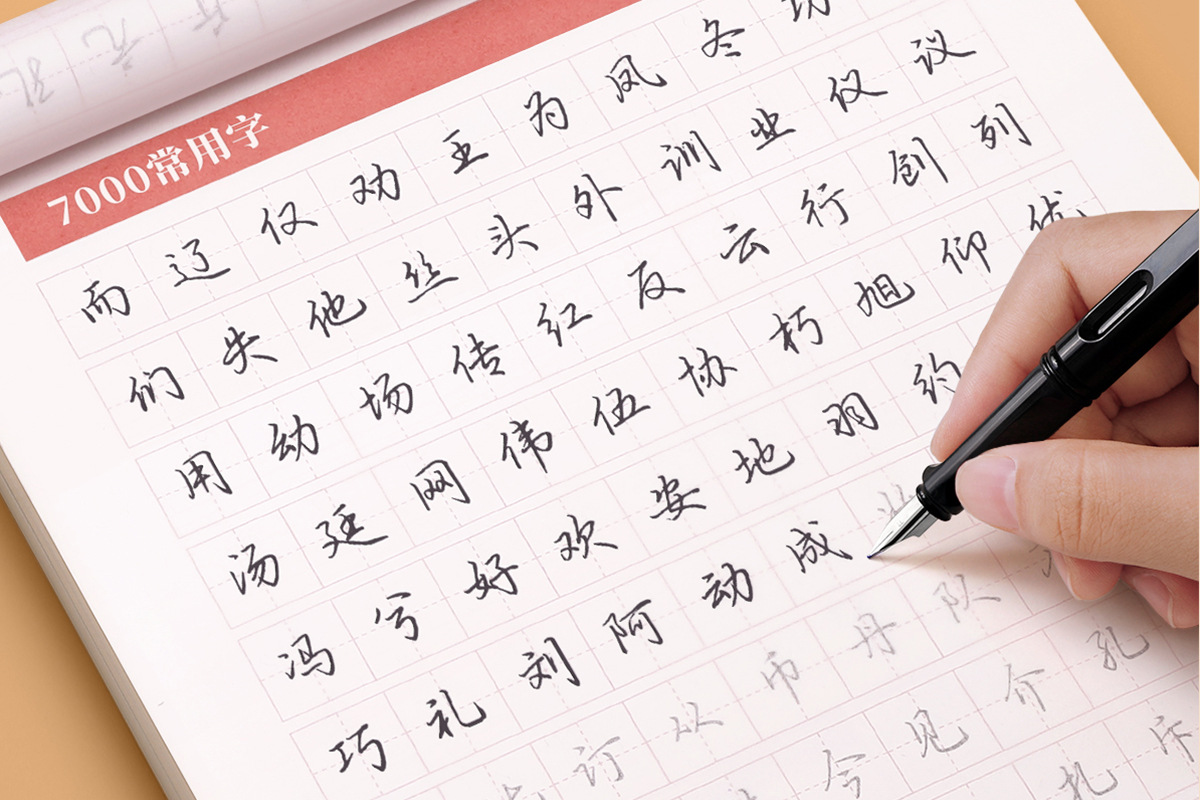 7000常用字
而辽仅劝王为凤冬
们失他丝头外训业仪议
用幼场传红反云行创列
汤廷网伟伍协朽旭仰
冯兮好欢安地羽约
巧礼刘阿动成
订从币丹队
今见介孔
扎